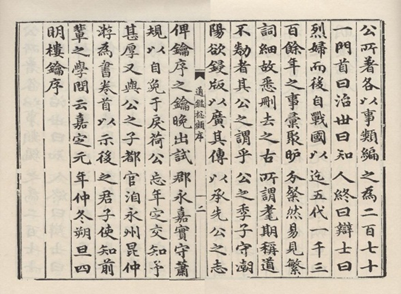 公所著各以事類編之為二百七十
一門首曰治世曰知人終曰辯士曰
烈婦而後自戰國以迄五代一千三
百餘年之事彙聚昈分粲然易見繁
詞細故悉刪去之古所謂耄期稱道
不勌者其公之謂乎公之季子守潮
陽欲鋟版以廣其傳以承先公之志
通鑑總類序 二
俾鑰序之鑰晚出試郡永嘉實守蕭
規以自免于戾荷公忘年定交知予
甚厚又與公之子都官洎永州昆仲
將為書卷首以示後之君子使知前
輩之學問云嘉定元年仲冬朔旦四
明樓鑰序